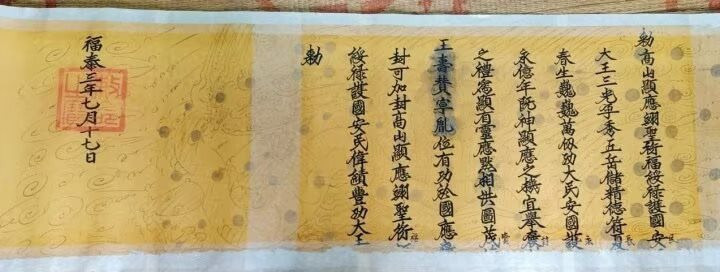 勅高山顯應翊聖衍福綏祿護國安
大王三光孕秀五岳儲精德
春生巍巍萬仭功大民安國
永億年既神顯應之宜舉
之禮爲顯有靈應默相洪圖茂
王壽賛寧胤位有功於國應
封可加封高山顯應翊聖衍
綏祿護國安民偉績豐功大王
勅
福泰三年七月十七日